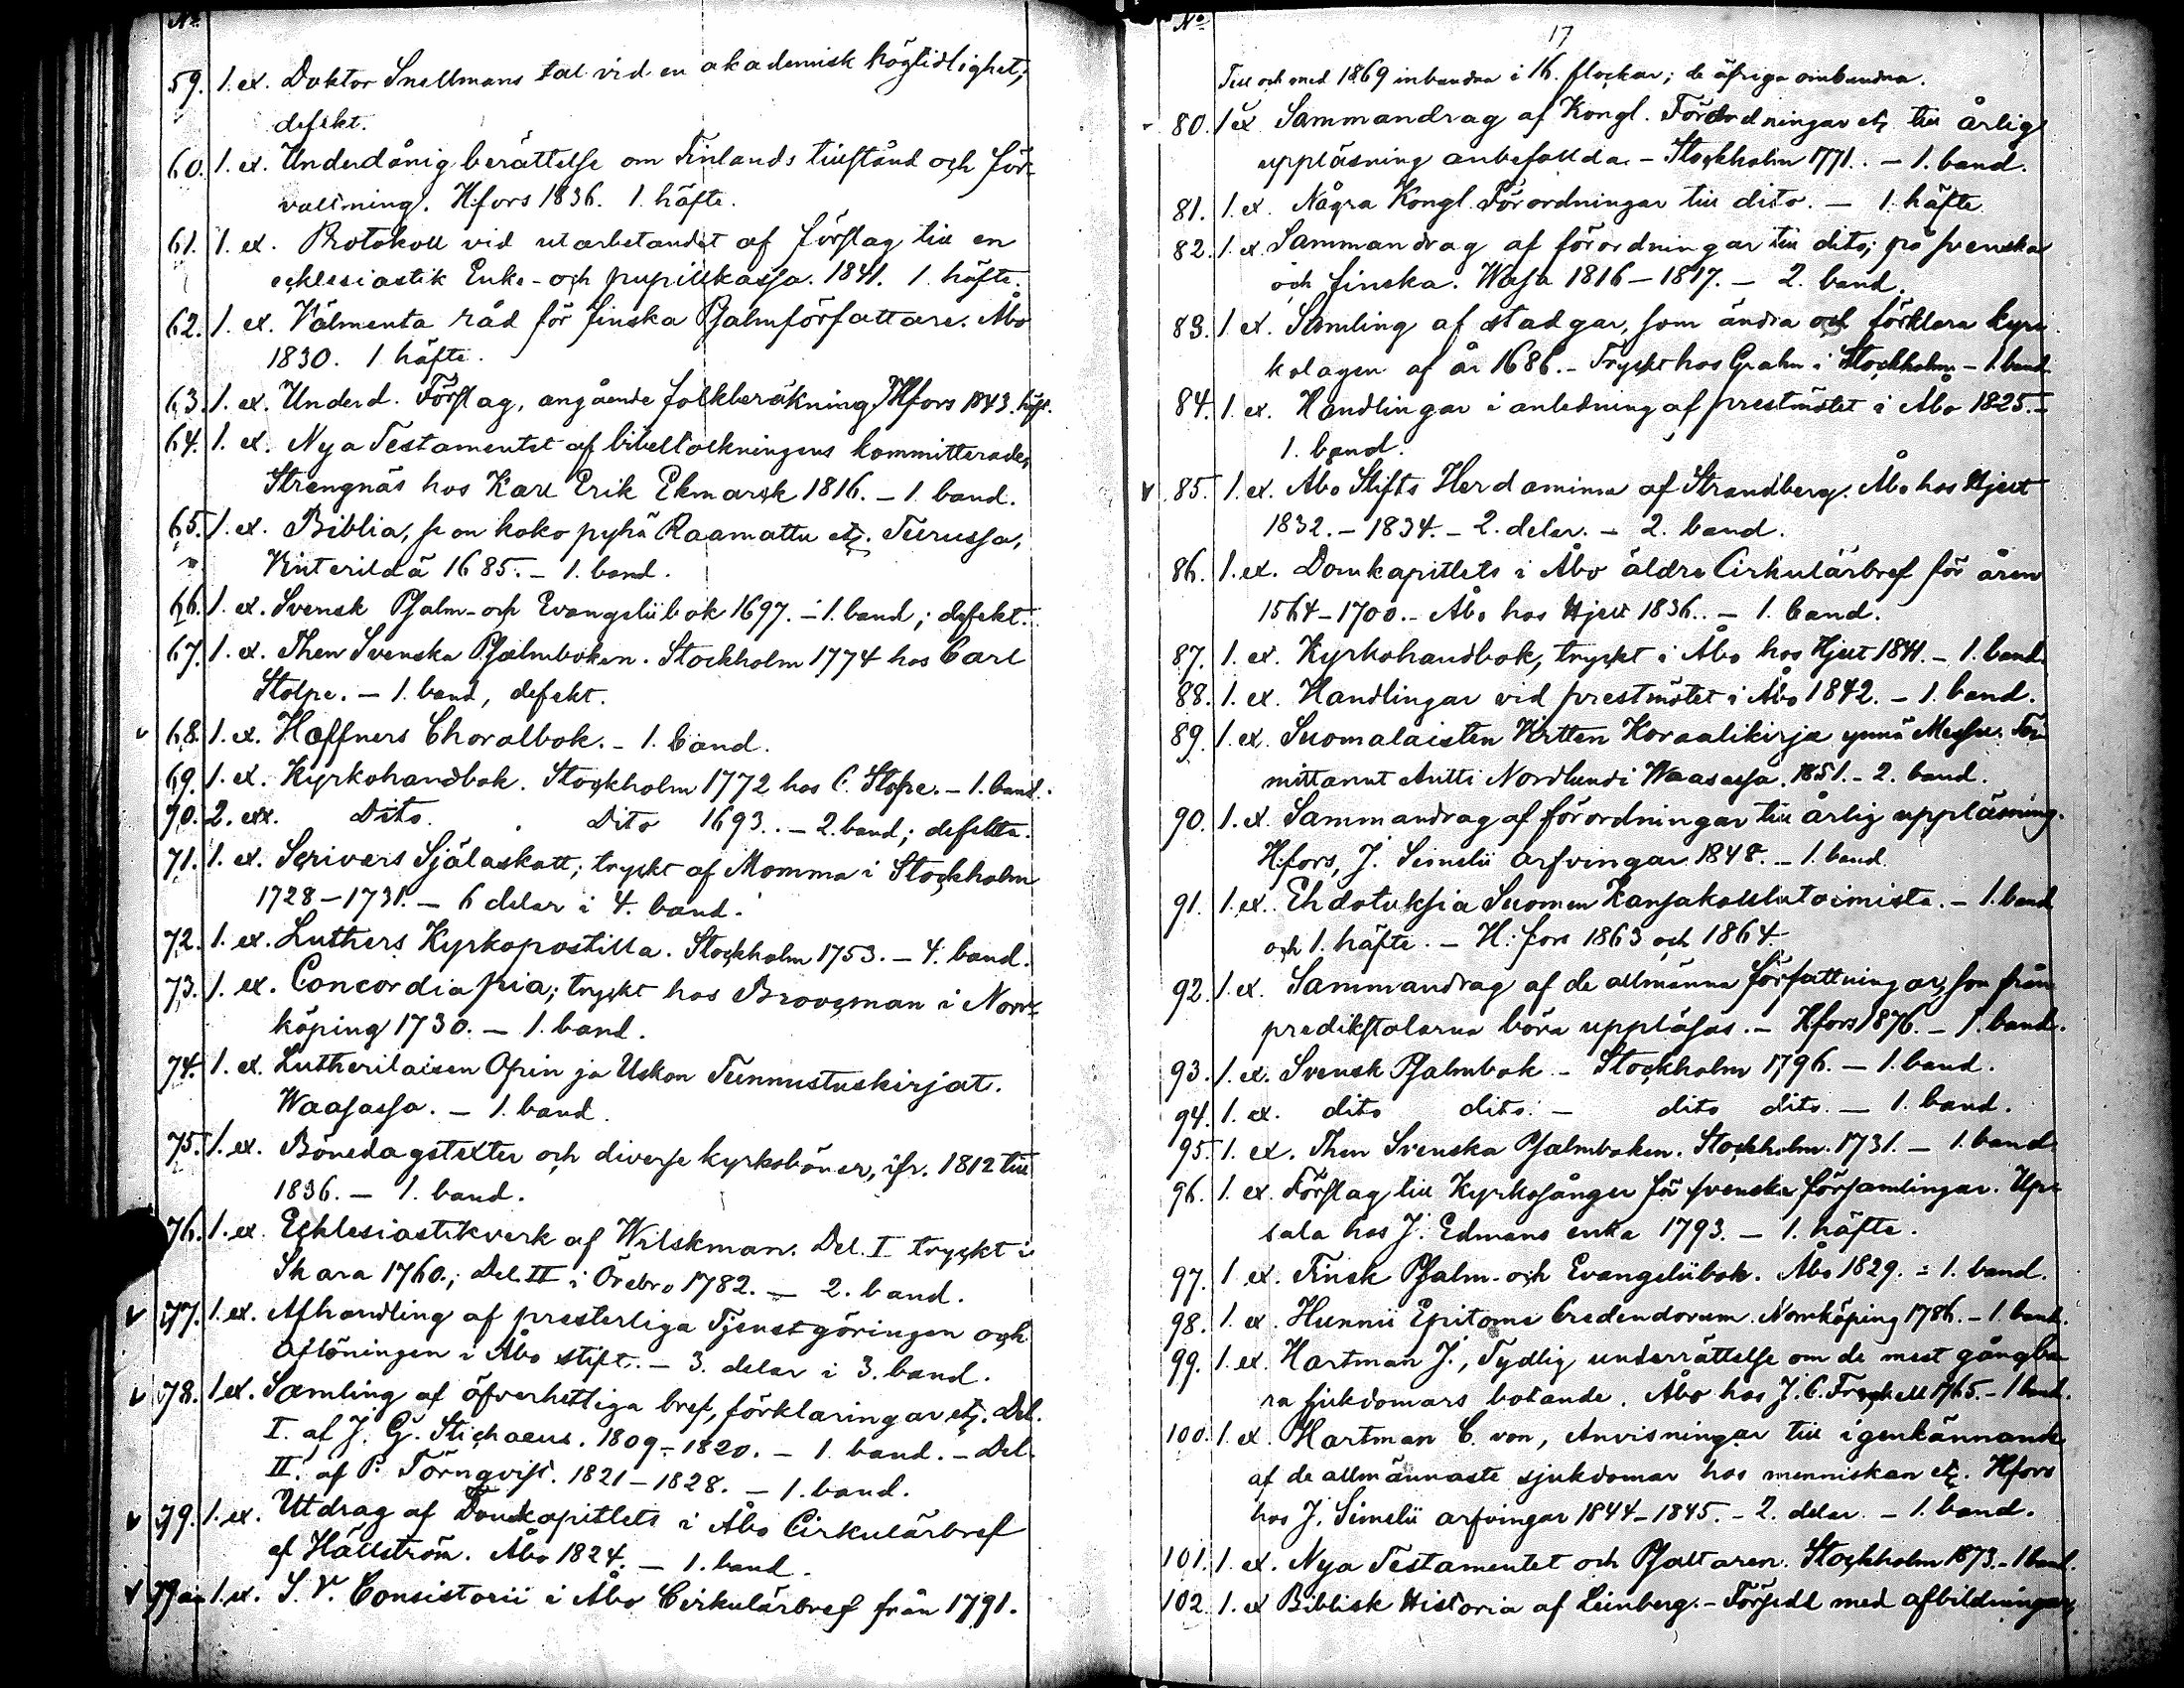 No
59. 1. ex. Doktor Snellmans tal vid en akademisk högtidlighet;
defekt.
60. 1. ex. Underdånig berättelse om Finlands tillstånd och för-
valtning. H:fors 1836. 1. häfte.
61. 1. ex. Protokoll vid utarbetandet af förslag till en
ecklesiastik Enke- och pupillkassa. 1841. 1. häfte.
62. 1. ex. Välmenta råd för finska Psalmförfattare. Åbo
1830. 1 häfte.
63. 1. ex. Underd. Förslag, angående folkberäkning. H:fors 1843. häft.
64. 1. ex. Nya Testamentet af bibeltolkningens kommitterade,
Strengnäs hos Karl Erik Ekmarck 1816. - 1. band.
65. 1. ex. Biblia, se on koko pyhä Raamattu etc. Turussa,
1685. - 1. band.
66. 1. ex. Svensk Psalm- och Evangeliibok 1697. - 1. band; defekt.
67. 1. ex. Then Svenska Psalmboken. Stockholm 1774 hos Carl
Stolpe. - 1. band, defekt.
68. 1. ex. Hæffners Choralbok. - 1. band.
69. 1. ex. Kyrkohandbok. Stockholm 1772 hos C. Stolpe. - 1. band.
70. 2. exx. Dito. Dito 1693. - 2. band; defekta.
71. 1. ex. Scrivers Själaskatt; tryckt af Momma i Stockholm
1728-1731. - 6 delar i 4. band.
72. 1. ex. Luthers Kyrkopostilla. Stockholm 1753. - 4. band.
73. 1. ex. Concordia pia; tryckt hos Broocman i Norr-
köping 1730. - 1. band.
74. 1. ex. Lutherilaisen Opin ja Uskon Tunnustuskirjat.
Waasassa. - 1. band.
75. 1. ex. Bönedagstexter och diverse kyrkoböner, ifr. 1812 till
1836. - 1. band.
76. 1. ex. Ecklesiastikverk af Wilskman. Del. I tryckt i
Skara 1760.; Del. II i Örebro 1782. - 2. band.
77. 1. ex. Afhandling af presterliga Tjenstgöringen och
aflöningen i Åbo stift. - 3. delar i 3. band.
78. 1. ex. Samling af öfverhetliga bref, förklaringar etc. Del.
I. af J. G. Stichaeus. 1809-1820. - 1. band. - Del.
II. af P. Törnqvist. 1821-1828. - 1. band.
79. 1. ex. Utdrag af Domkapitlets i Åbo Cirkulärbref
af Hällström. Åbo 1824. - 1. band.
79 a. 1. ex. S. V. Consistorii i Åbo Cirkulärbref från 1791.
No
17
Till och med 1869 inbundna i 16. flockar; de öfriga oinbundna.
80. 1 ex. Sammandrag af Kongl. Förordningar etc. till årlig
uppläsning anbefallda. - Stockholm 1771. - 1. band.
81. 1. ex. Några Kongl. Förordningar till dito. - 1. häfte.
82. 1. ex. Sammandrag af förordningar till dito; på svenska
och finska. Wasa 1816-1817. - 2. band.
83. 1. ex. Samling af stadgar, som ändra och förklara kyr-
kolagen af år 1686. - Tryckt hos Grahn i Stockholm - 1. band.
84. 1. ex. Handlingar i anledning af prestmötet i Åbo 1825. -
1. band.
85. 1. ex. Åbo Stifts Herdaminne af Strandberg. Åbo hos Hjelt
1832. - 1834. - 2. delar. - 2. band.
86. 1. ex. Domkapitlets i Åbo äldre Cirkulärbref för åren
1564-1700. - Åbo hos Hjelt 1836. - 1. band.
87. 1. ex. Kyrkohandbok, tryckt i Åbo hos Hjelt 1841. - 1. band.
88. 1. ex. Handlingar vid prestmötet i Åbo 1842. - 1. band.
89. 1. ex. Suomalaisten Virtten Koraalikirja ynnä Messu. Toi-
mittanut Antti Nordlundi Waasassa. 1851. - 2. band.
90. 1. ex. Sammandrag af förordningar till årlig uppläsning.
H:fors, J. Simelii arfvingar 1848. - 1. band.
91. 1. ex. Ehdotuksia Suomen Kansakoulutoimista. - 1. band
och 1. häfte. - H:fors 1863 och 1864.
92. 1. ex. Sammandrag af de allmänna författningar, som från
predikstolarna böra uppläsas. - H:fors 1876. - 1. band.
93. 1. ex. Svensk Psalmbok. - Stockholm 1796. - 1. band.
94. 1. ex. dito dito. - dito dito. - 1. band.
95. 1. ex. Then Svenska Psalmboken. Stockholm. 1731. - 1. band
96. 1. ex. Förslag till Kyrkosånger för svenska församlingar. Up-
sala hos J. Edmans enka 1793. - 1. häfte.
97. 1 ex. Finsk Psalm- och Evangeliibok. Åbo 1829. - 1. band.
98. 1. ex. Hunnii Epitome Credendorum. Norrköping 1786. - 1. band.
99. 1. ex. Hartman J., Tydlig underrättelse om de mest gångba-
ra sjukdomars botande. Åbo hos J. C. Frenckell 1765. - 1 band.
100. 1. ex. Hartman C. von, Anvisningar till igenkännande
af de allmännaste sjukdomar hos menniskan etc. H:fors
hos J. Simelii arfvingar 1844-1845. - 2. delar. - 1. band.
101. 1. ex. Nya Testamentet och Psaltaren. Stockholm 1873. - 1 band.
102. 1. ex Biblisk Historia af Leinberg. - Försedd med afbildningar,